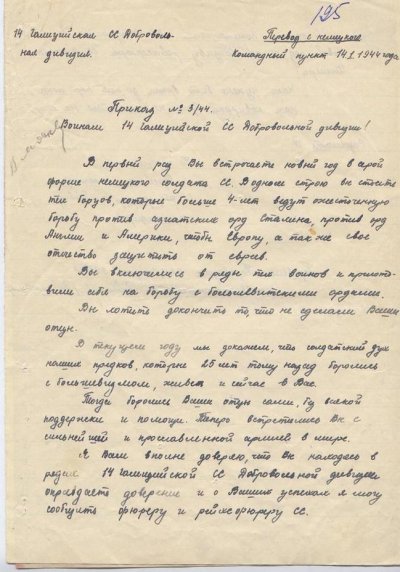 195
14 Галицийская СС Доброволь-
ная дивизия.
Перевод с немецкого
Командный пункт 14.I.1944 года
Приказ № 3/44.
Воинам 14 Галицийской СС Добровольной дивизии!
В первый раз Вы встречаете новый год в серой
форме немецкого солдата СС. В одном строю вы стоите
тех борцов, которые больше 4-лет ведут ожесточенную
борьбу против азиатских орд Сталина, против орд
Англии и Америки, чтобы Европу, а так же свое
отечество защитить от евреев.
Вы включились в ряды тех воинов и пригото-
вили себя на борьбу с большевитскими ордами.
Вы хотите докончить то, что не сделали Ваши
отцы.
В текущем году мы докажем, что солдатский дух
наших предков, которые 25 лет тому назад боролись
с большевизмом, живет и сейчас в Вас.
Тогда боролись Ваши отцы сами, без всякой
поддержки и помощи. Теперь встретились Вы с
сильней шей и прославленной армией в мире.
Я Вам вполне доверяю, что Вы находясь в
рядах 14 Галицийской СС Добровольной дивизии
оправдаете доверение и о Ваших успехах я могу
сообщить фюреру и рейхсфюреру СС.